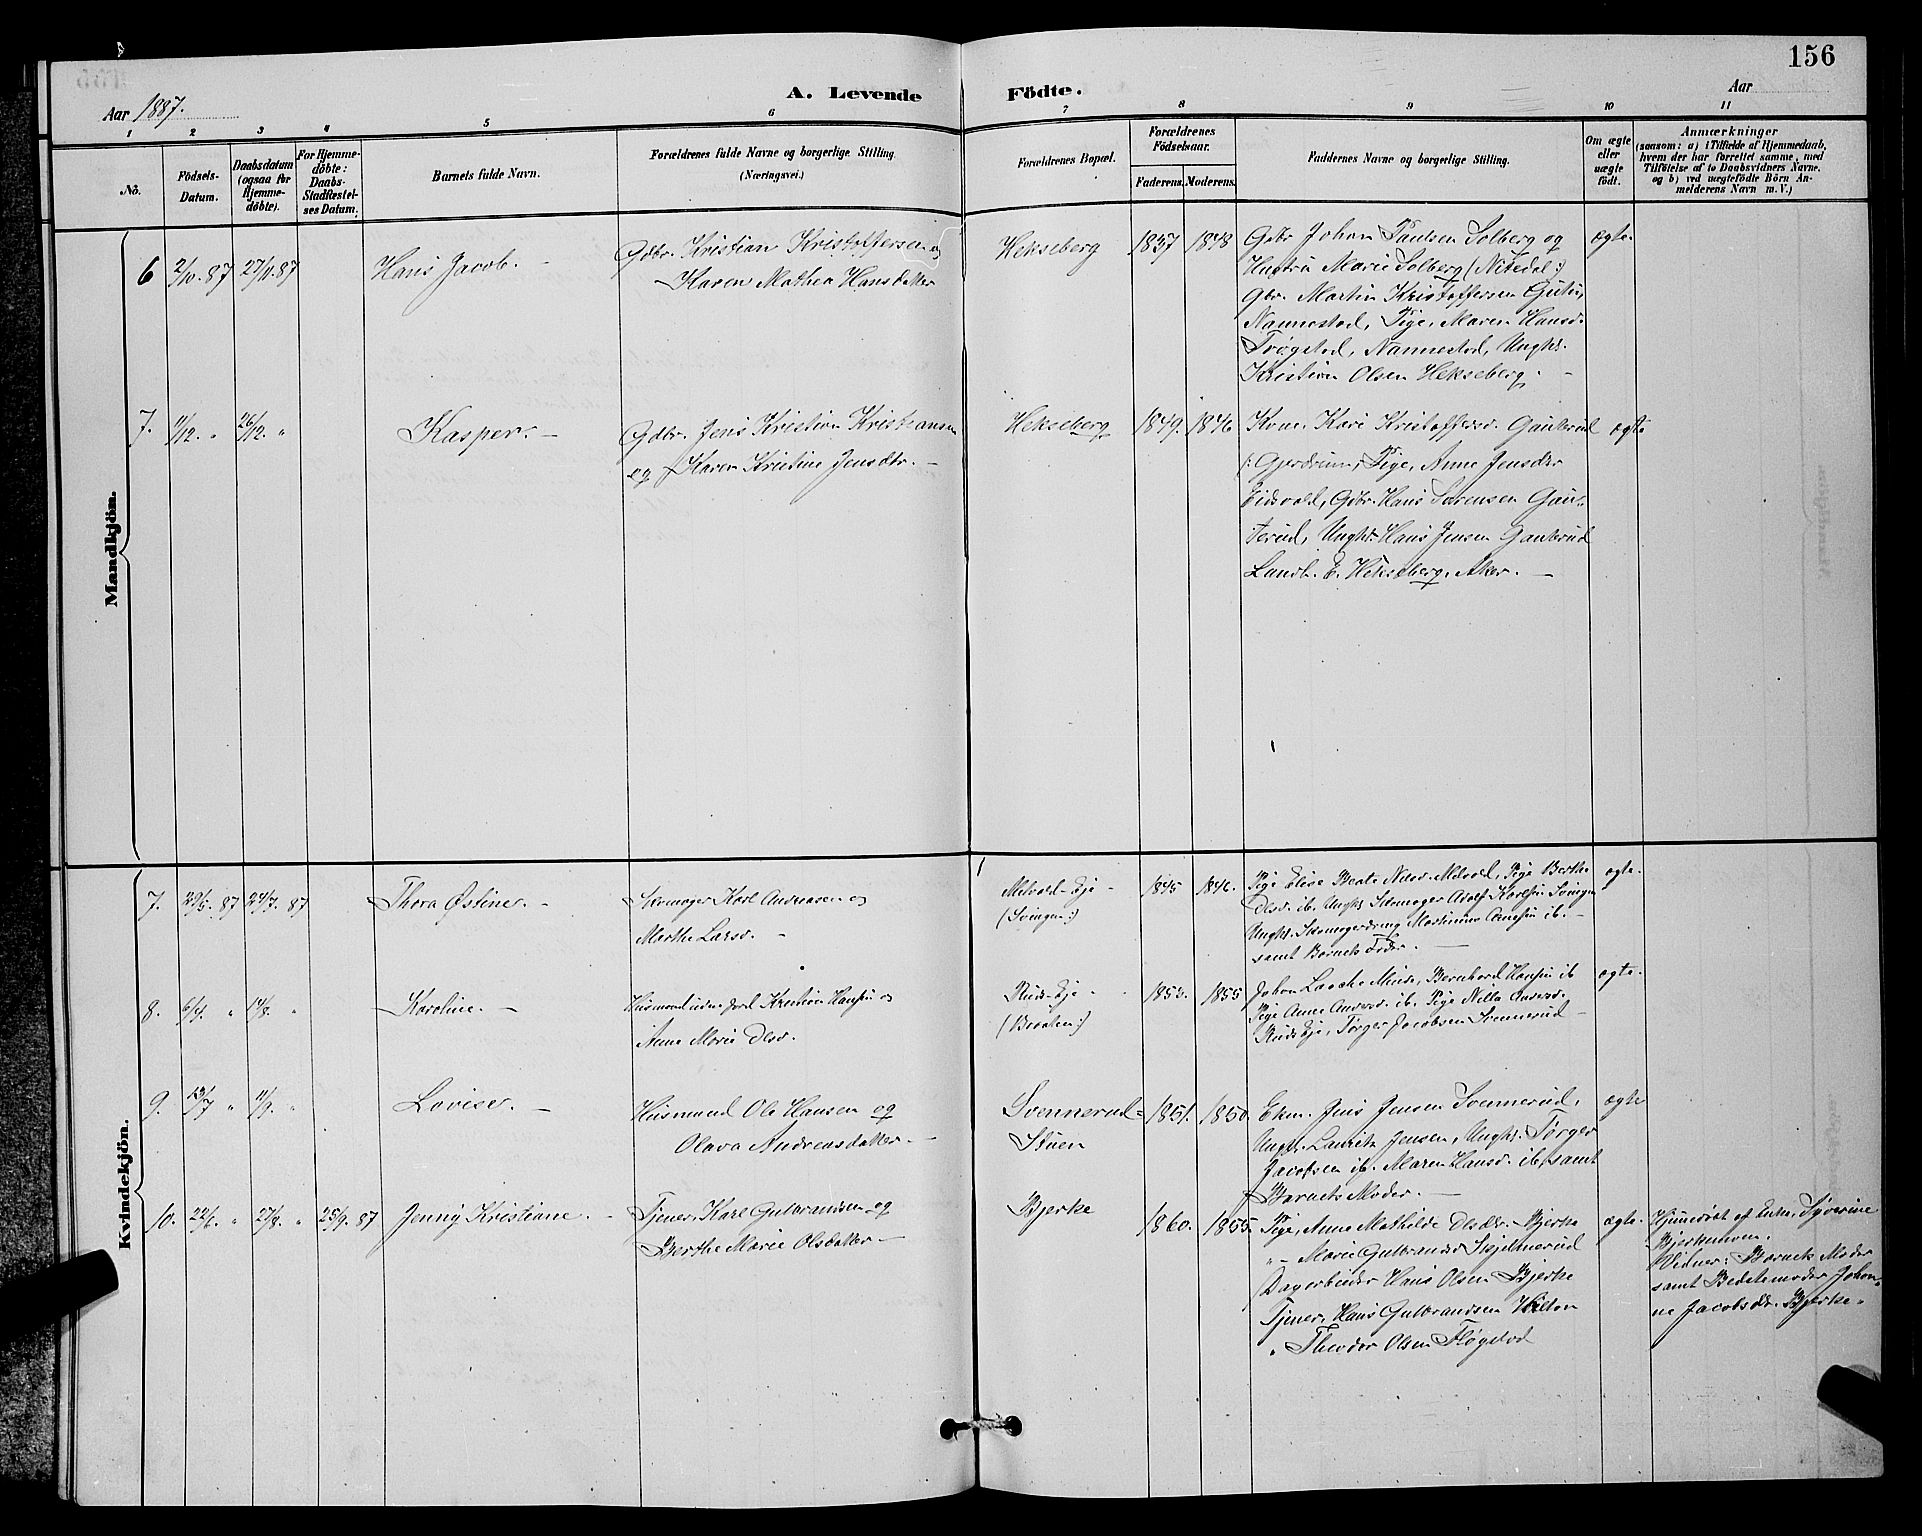 156
A. Levende Födte.
Aar 1887.
Aar
1 2 3 4 5 6 7 8 9 10 11
No.
Födsels-Datum.
Daabsdatum (ogsaa for Hjemme-döbte).
For Hjemme-döbte: Daabs-Stadfæstel-ses Datum.
Barnets fulde Navn.
Forældrenes fulde Navne og borgerlige Stilling.
(Næringsvei.)
Forældrenes Bopæl.
Forældrenes Födselsaar.
Faderens. Moderens.
Faddernes Navne og borgerlige Stilling.
Om ægte eller uægte födt.
Anmærkninger
(saasom: a) i Tilfælde af Hjemmedaab,
hvem der har forrettet samme, med
Tilföielse af to Daabsvidners Navne,
og b) ved uægtefödte Börn An-
melderens Navn m. V.)
Mandkjön.
6 2/10. 87 27/11. 87
Hans Jacob. –
Gdbr. Kristian Kristoffersen og
Karen Mathea Hansdatter
Hekseberg
1837 1848
Gdbr Johan Paulsen Solberg og
Hustru Marie Solberg (Nitedal:)
Gbr. Martin Kristoffersen
Nannestad, Pige, Maren Hansd.
Trøgstad, Nannestad, Unghr.
Kristian Olsen Hekseberg. –
ægte.
7. 11/12. " 26/12. "
Kasper. –
Gdbr. Jens Kristian Kristiansen
og Karen Kristine Jensdtr. –
Hekseberg
1849. 1846
Kone, Kari Kristoffersd. Gauterud
(: Gjerdrum, Pige, Anne Jensdtr
Eidsvold, Gdbr. Hans Sørensen Gau-
terud, Unghr. Hans Jensen Gauterud
E. Hekseberg, Aker. –
ægte
Kvindekjön.
7. 29/5. 87 24/7. 87
Thora Østine. –
Skomager Karl Andreasen og
Marthe Larsd. –
Melvold-Eje –
(Svingen:)
1845 1846.
Pige Elise Beate Nilsd. Melvold, Pige Berthe
Olsd. ib. Unghr Skomager Adolf Karlsen Svingen
Unghr. Skomagerdreng Martinius ib. –
samt Barnets Fader. –
ægte.
8. 6/4. " 14/8. "
Karoline. –
Husmand uden Jord Kristian Hansen og
Anne Marie Olsd.
Ruds-Eje –
(Braaten:)
1853. 1855
Johan Laache Bernhard Hansen ib
Pige Anne Andersd. ib. Pige Nilla Andersd.
Ruds Eje, Tørger Jacobsen Svennerud –
ægte.
9. 13/7 " 11/9. "
Lovise. –
Husmand Ole Hansen og
Olava Andreasdatter. –
Svennerud-
Stuen
1851. 1850.
Ekm. Jens Jensen Svennerud,
Unghr. Lauritz Jensen, Unghr. Tørger
Jacobsen ib. Maren Hansd. ib. samt
Barnets Moder. –
ægte
10. 22/6. " 27/8. " 25/9. 87
Jenny Kristiane. –
Tjener, Karl Gulbrandsen og
Berthe Marie Olsdatter –
Bjerke
1860. 1855.
Pige, Anne Mathilde Olsdtr. Bjerke
" – Marie Gulbrandsd
Dagarbeider Hans Olsen Bjerke
Tjener, Hans Gulbrandsen Hilton
" Theodor Olsen Fløgstad
ægte.
Hjemdøbt af Enke, Syverine
Bjerkemoen.
Vidner: Barnets Moder
samt Bedstemoder Johan-
ne Jacobsdtr. Bjerke.